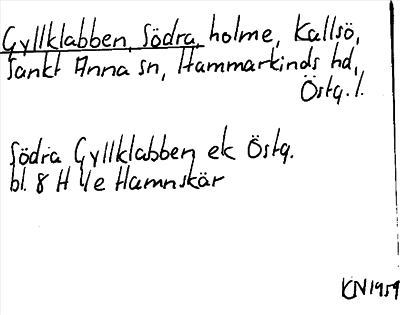 Gyllklabben, Södra, holme, Kallsö,
Sankt Anna sn, Hammarkinds hd,
Östg. l.
Södra Gyllklabben ek Östg.
bl. 8 H 4e Hamnskär
KN 1959